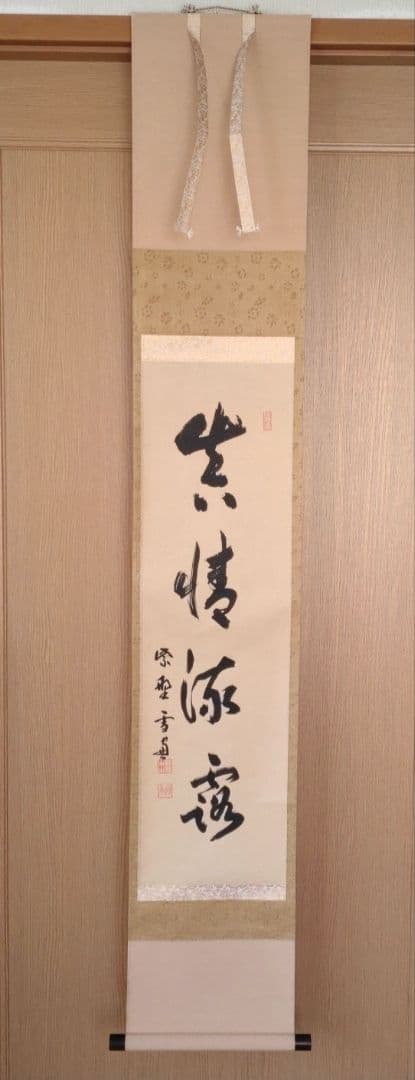 真情流露
紫野雪貢